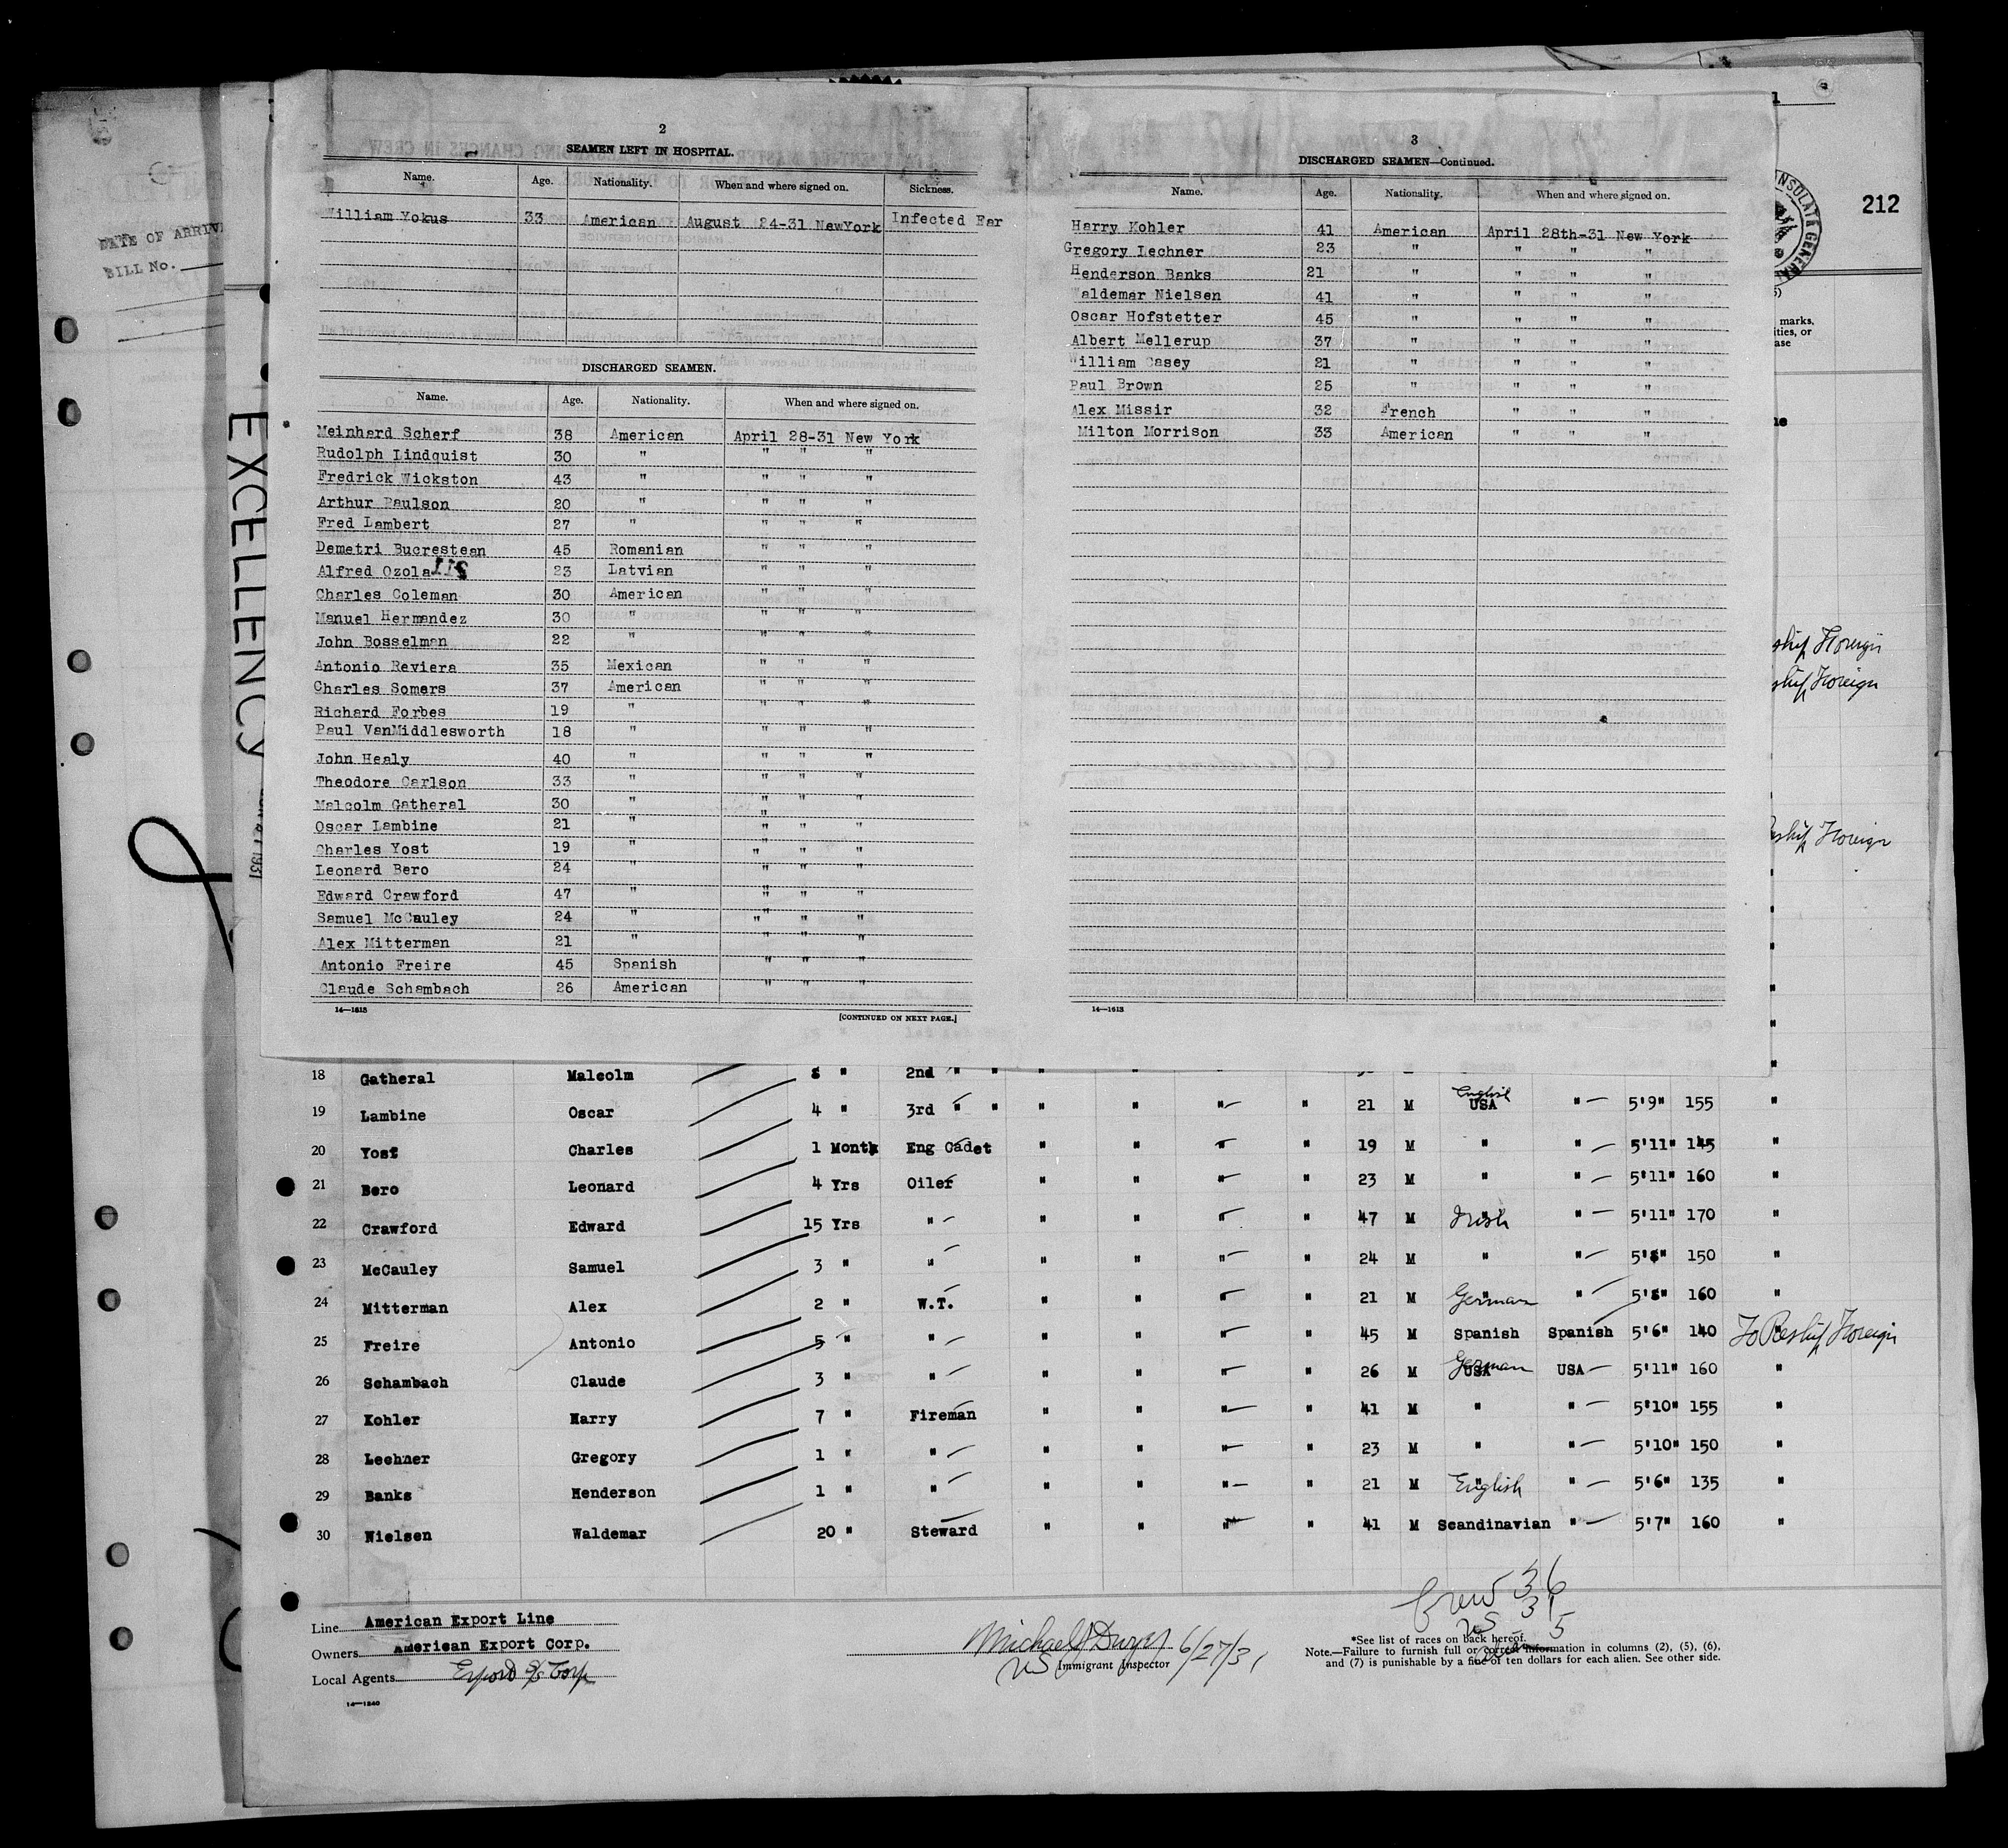 2
SEAMEN LEFT IN HOSPITAL.
Name. Age. Nationality. When and where signed on. Sickness.
William Yokus 33 American August 24-31 NewYork Infected Ear
DISCHARGED SEAMEN.
Name. Age. Nationality. When and where signed on.
Meinhard Scherf 38 American April 28-31 New York
Rudolph Lindquist 30 " " " "
Fredrick Wickston 43 " " " "
Arthur Paulson 20 " " " "
Fred Lambert 27 " " " "
Demetri Bucrestean 45 Romanian " " "
Alfred Ozola 23 Latvian " " "
Charles Coleman 30 American " " "
Manuel Hermandez 30 " " " "
John Bosselman 22 " " " "
Antonio Reviera 35 Mexican " " "
Charles Somers 37 American " " "
Richard Forbes 19 " " " "
Paul VanMiddlesworth 18 " " " "
John Healy 40 " " " "
Theodore Carlson 33 " " " "
Malcolm Gatheral 30 " " " "
Oscar Lambine 21 " " " "
Charles Yost 19 " " " "
Leonard Bero 24 " " " "
Edward Crawford 47 " " " "
Samuel McCauley 24 " " " "
Alex Mitterman 21 " " " "
Antonio Freire 45 Spanish " " "
Claude Schambach 26 American " " "
14—1613
[CONTINUED ON NEXT PAGE.]
3
DISCHARGED SEAMEN—Continued.
Name. Age. Nationality. When and where signed on.
Harry Kohler 41 American April 28th-31 New York
Gregory Lechner 23 " " " "
Henderson Banks 21 " " " "
Waldemar Nielsen 41 " " " "
Oscar Hofstetter 45 " " " "
Albert Mellerup 37 " " " "
William Casey 21 " " " "
Paul Brown 25 " " " "
Alex Missir 32 French " " "
Milton Morrison 33 American " " "
14—1613
212
DATE OF ARRIV
BILL No.
EXCELLENCY
1931
marks,
ities, or
ase
ship Foreign
ship Foreign
Reship Foreign
18 Gatheral Malcolm 8 " 2nd " " " "
19 Lambine Oscar 4 " 3rd " " " " " " 21 M English USA " 5'9" 155 "
20 Yost Charles 1 Month Eng Cadet " " " " 19 M " " 5'11" 145 "
21 Bero Leonard 4 Yrs Oiler " " " " 23 M " " 5'11" 160 "
22 Crawford Edward 15 Yrs " " " " " 47 M Irish " 5'11" 170 "
23 McCauley Samuel 3 " " " " " " 24 M " " 5'8" 150 "
24 Mitterman Alex 2 " W.T. " " " " 21 M German " 5'8" 160 "
25 Freire Antonio 5 " " " " " " 45 M Spanish Spanish 5'6" 140 To Reship Foreign
26 Schambach Claude 3 " " " " " " 26 M German USA USA 5'11" 160 "
27 Kohler Harry 7 " Fireman " " " " 41 M " " 5'10" 155 "
28 Lechner Gregory 1 " " " " " " 23 M " " 5'10" 150 "
29 Banks Henderson 1 " " " " " " 21 M English " 5'6" 135 "
30 Nielsen Waldemar 20 " Steward " " " " 41 M Scandinavian " 5'7" 160 "
Crew 36
US 31
5
Line American Export Line
Owners American Export Corp.
Local Agents Export SS Corp
14—1240
Michael J Dwyer 6/27/31
US Immigrant Inspector
*See list of races on back hereof.
Note.—Failure to furnish full or correct information in columns (2), (5), (6),
and (7) is punishable by a fine of ten dollars for each alien. See other side.